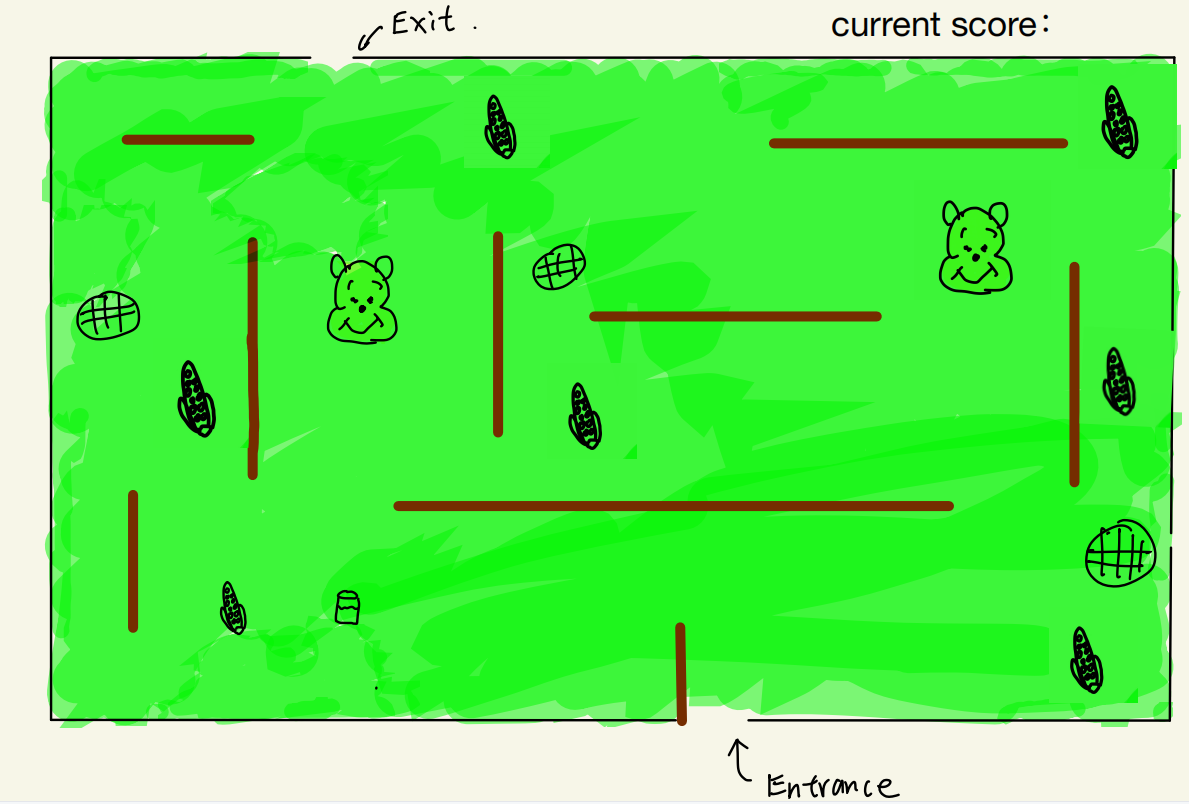 Exit .
current score:
Entrance